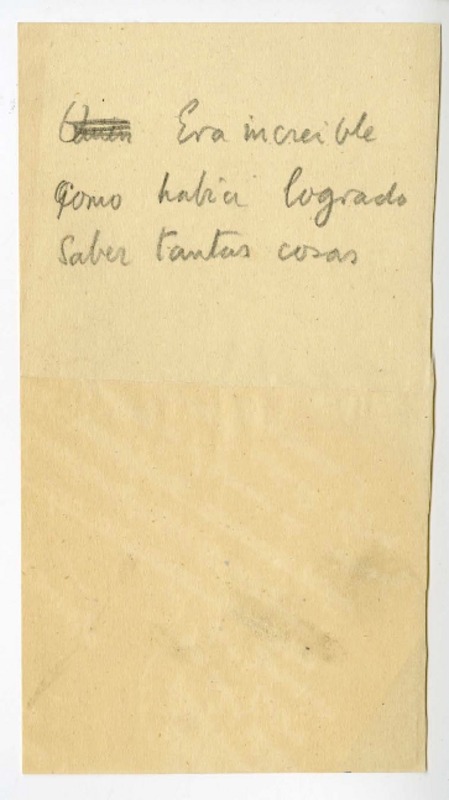 Era increible
Como habia logrado
Saber tantas cosas